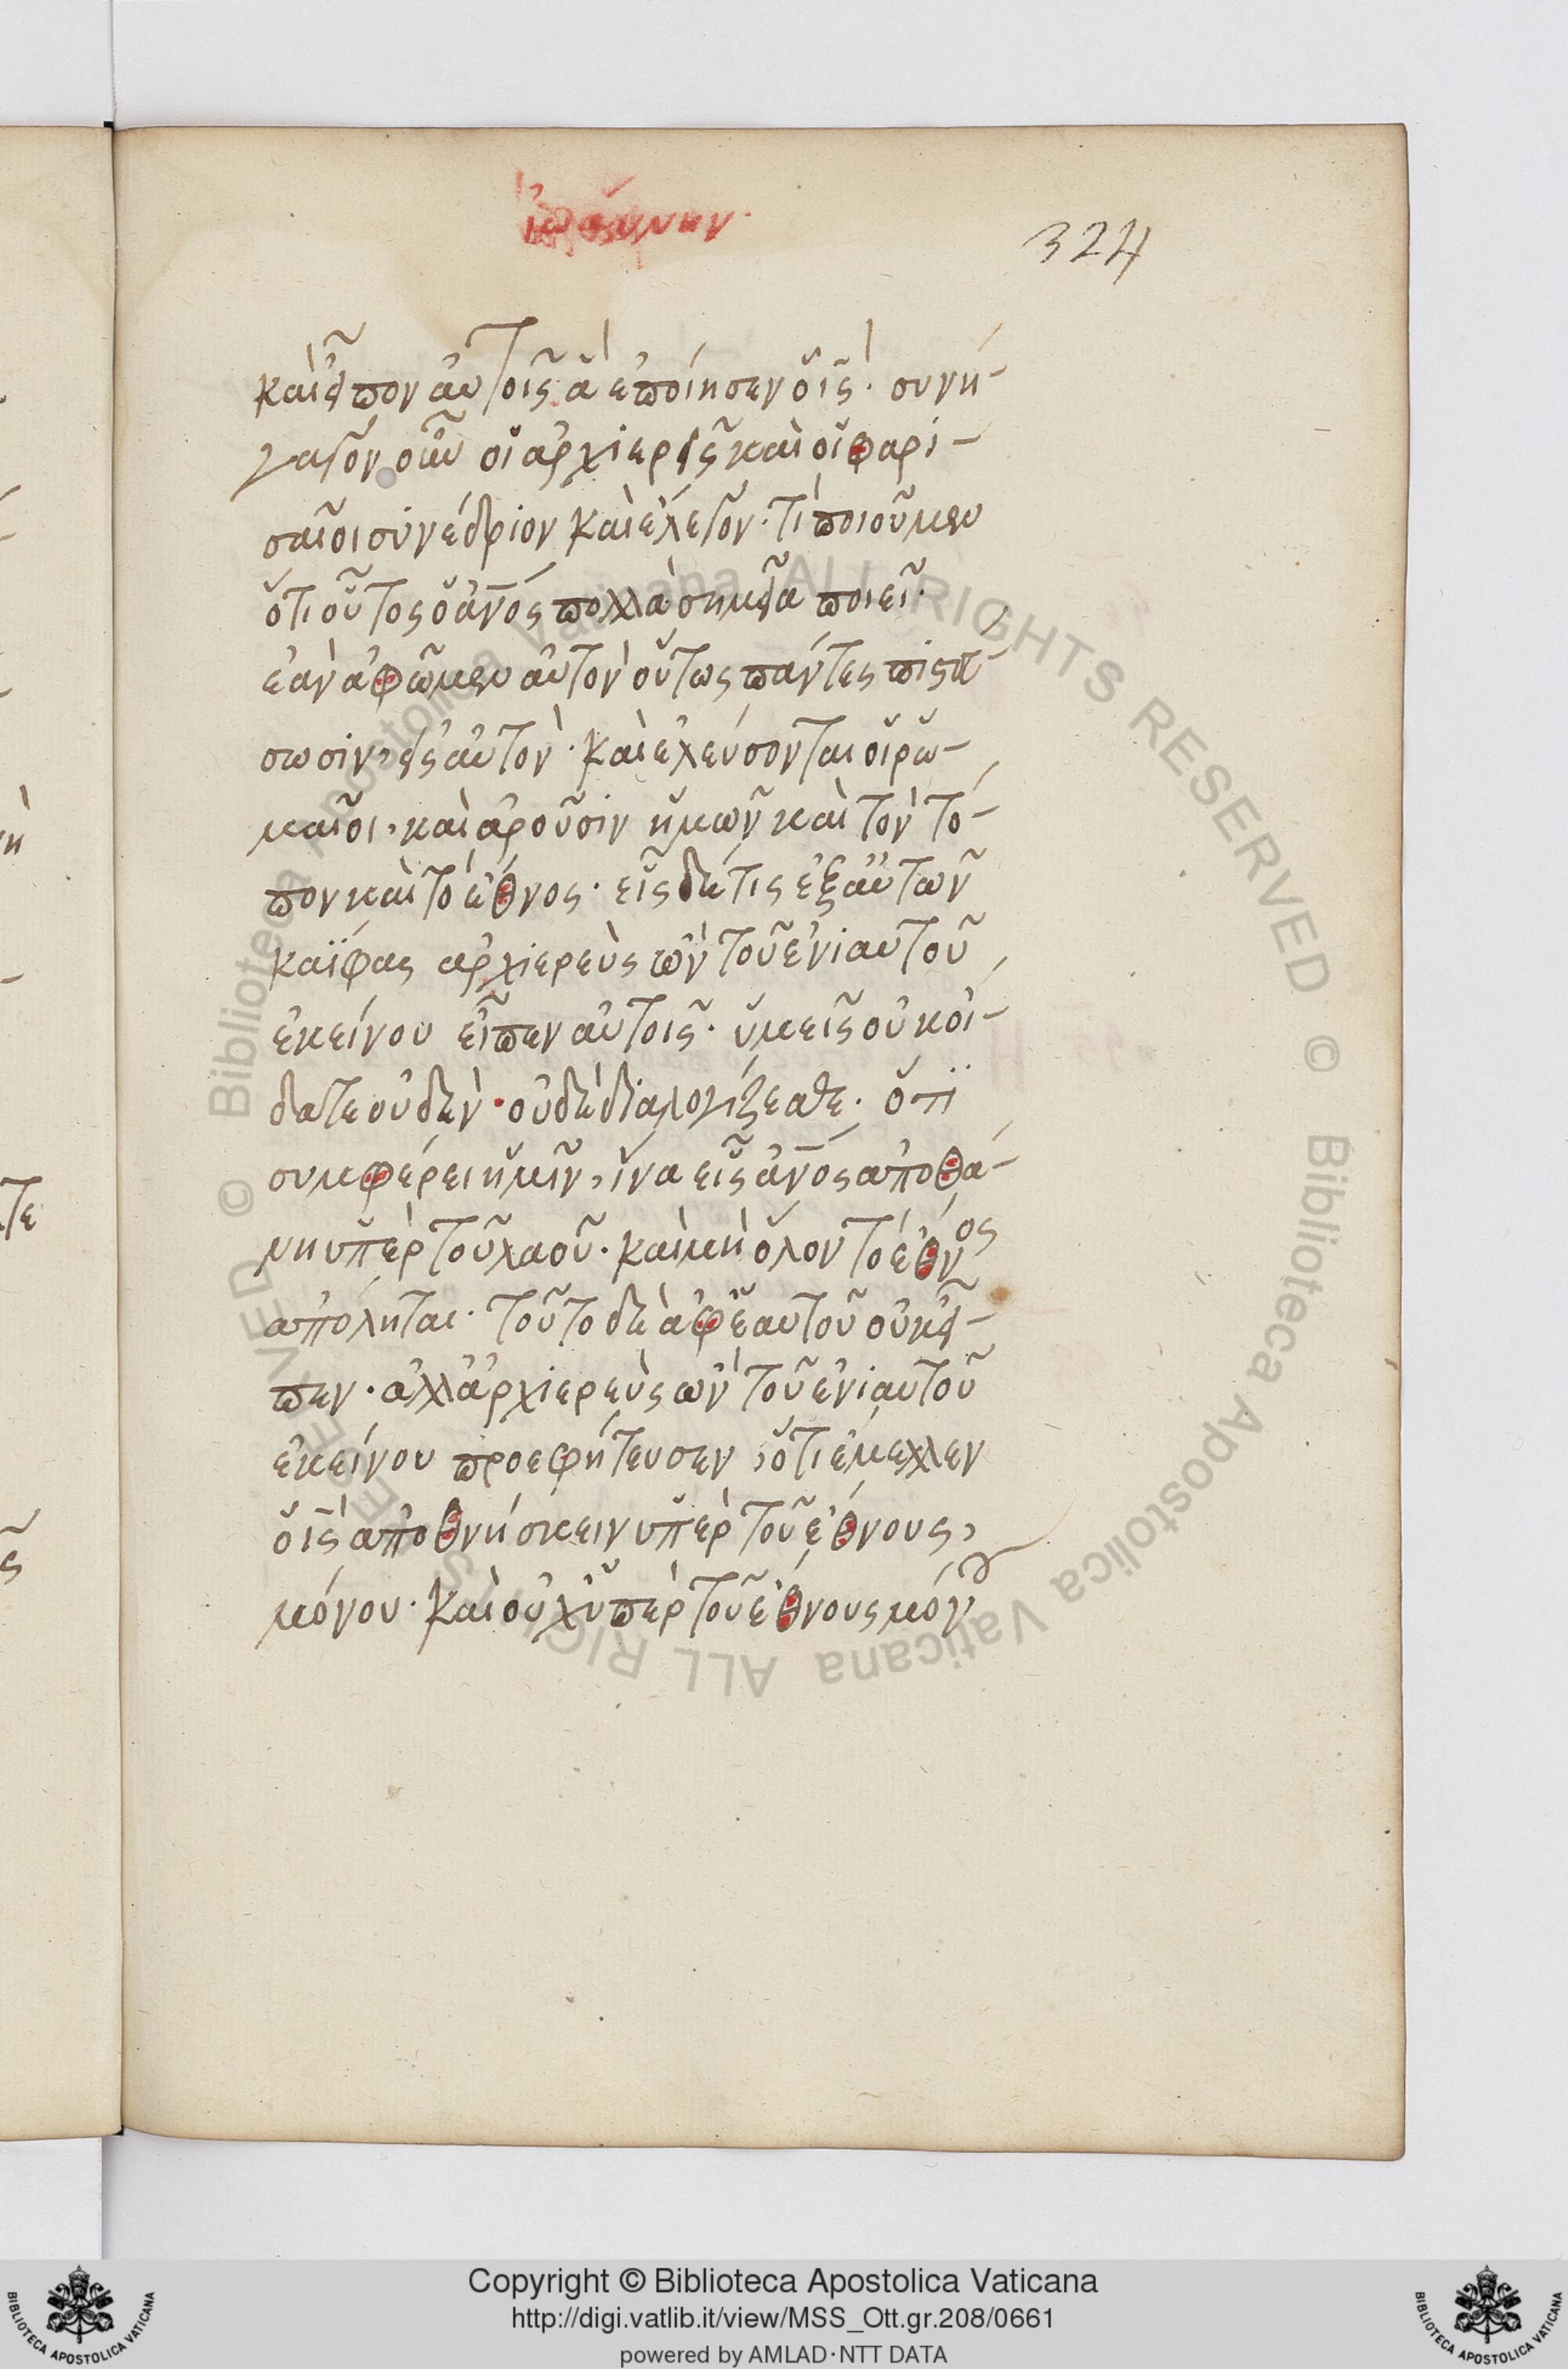 ἰωάννην·
324
καὶ εἶπον αὐτοῖς ἃ ἐποίησεν ὁ ι̅ς̅· συνή-
γαγον οὖν οἱ ἀρχιερεῖς καὶ οἱ φαρι-
σαῖοι συνέδριον καὶ ἔλεγον· τί ποιοῦμεν
ὅτι οὗτος ὁ ἄνο̅ς πολλὰ σημεῖα ποιεῖ·
ἐὰν ἀφῶμεν αὐτὸν οὕτως πάντες πιστεύ-
σωσιν, εἰς αὐτόν· καὶ ἐλεύσονται οἱ ῥω-
μαῖοι, καὶ ἀροῦσιν ἡμῶν καὶ τὸν τό-
πον καὶ τὸ ἔθνος· εἷς δέ τις ἐξ αὐτῶν
καϊφας ἀρχιερεὺς ὢν τοῦ ἐνιαυτοῦ
ἐκείνου εἶπεν αὐτοῖς· ὑμεῖς οὐκ οἴ-
δατε οὐδέν· οὐδὲ διαλογίζεσθε· ὅτι
συμφέρει ἡμῖν, ἵνα εἷς ἄνο̅ς ἀποθά-
νη ὑπὲρ τοῦ λαοῦ· καὶ μὴ ὅλον τὸ ἔθνος
ἀπόληται· τοῦτο δὲ ἀφ ἑαυτοῦ οὐκ εἶ-
πεν· ἀλλ ἀρχιερεὺς ὢν τοῦ ἐνιαυτοῦ
ἐκείνου προεφήτευσεν, ὅτι ἔμελλεν
ὁ ι̅ς̅ ἀποθνήσκειν ὑπὲρ τοῦ ἔθνους,
μόνου· καὶ οὐχ ὑπὲρ τοῦ ἔθνους μόνου
Copyright © Biblioteca Apostolica Vaticana
http://digi.vatlib.it/view/MSS_Ott.gr.208/0661
powered by AMLAD·NTT DATA